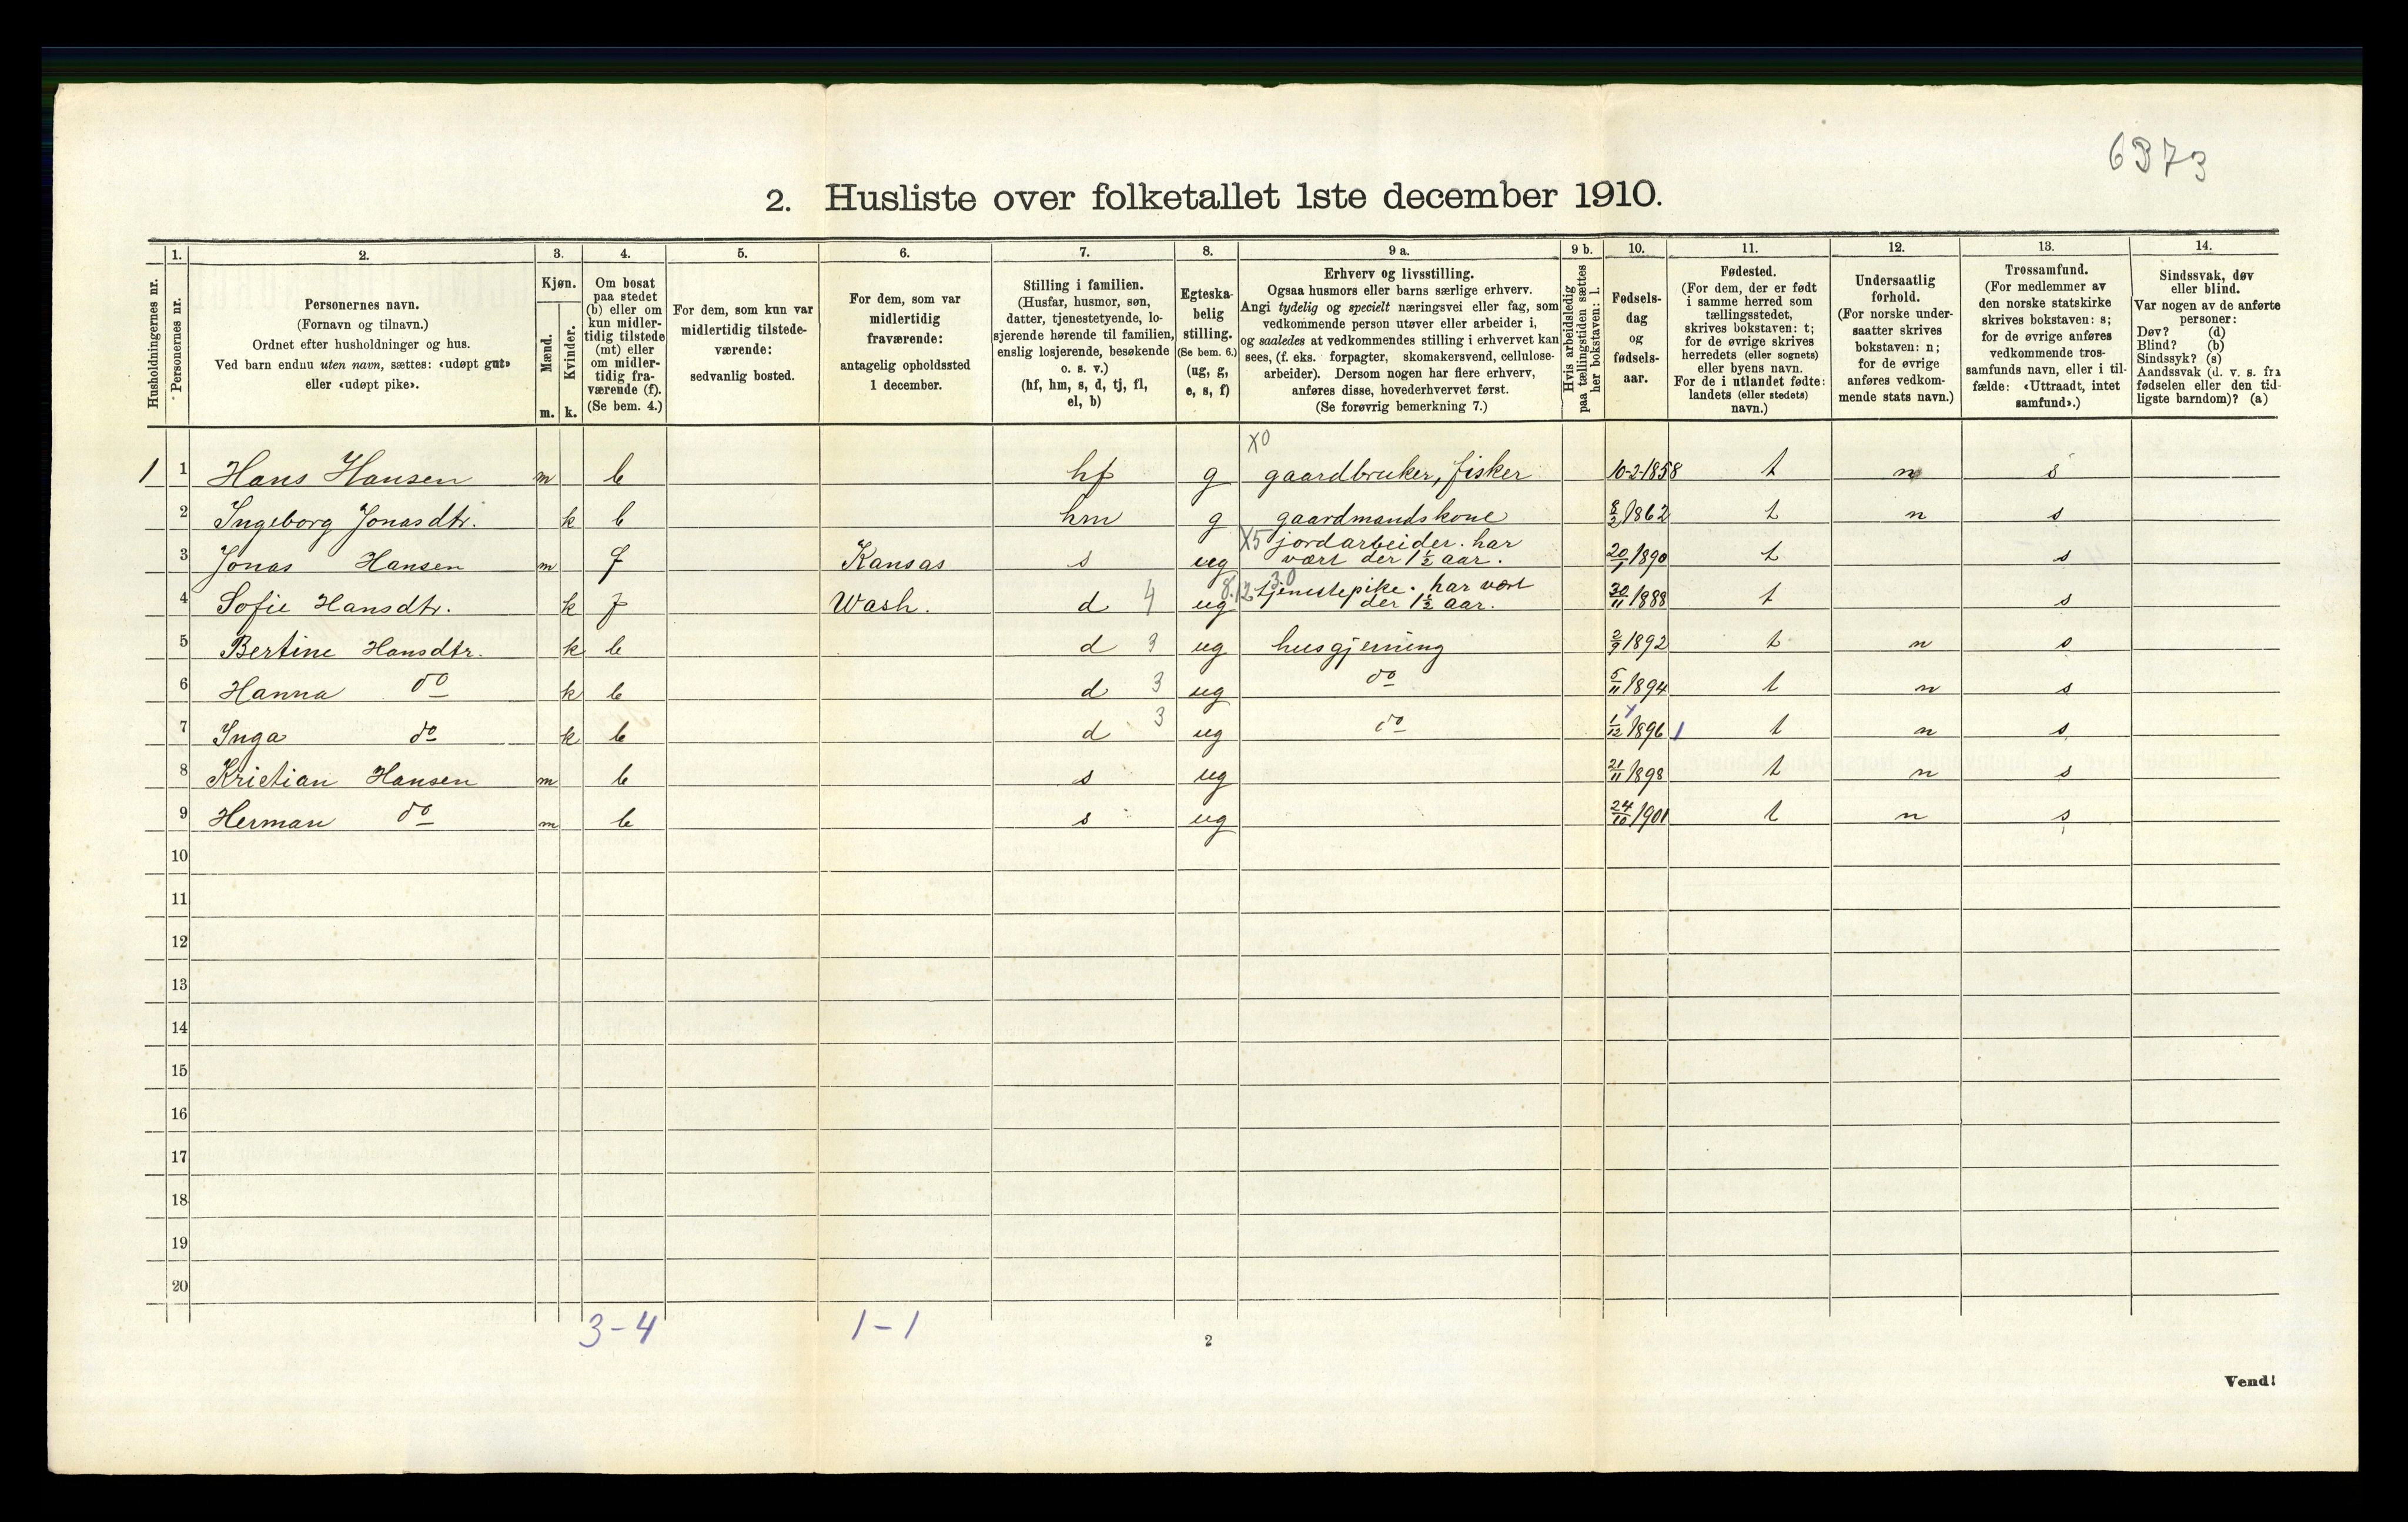 6373
2. Husliste over folketallet 1ste december 1910.
Husholdningernes nr.
1.
Personernes nr.
2.
Personernes navn.
(Fornavn og tilnavn.)
Ordnet efter husholdninger og hus.
Ved barn endnu uten navn, sættes: «udøpt gut»
eller «udøpt pike».
3.
Kjøn.
Mænd.
Kvinder.
m. k.
4.
Om bosat
paa stedet
(b) eller om
kun midler-
tidig tilstede
(mt) eller
om midler-
tidig fra-
værende (f).
(Se bem. 4.)
5.
For dem, som kun var
midlertidig tilstede-
værende:
sedvanlig bosted.
6.
For dem, som var
midlertidig
fraværende:
antagelig opholdssted
1 december.
7.
Stilling i familien.
(Husfar, husmor, søn,
datter, tjenestetyende, lo-
sjerende hørende til familien,
enslig losjerende, besøkende
o. s. v.)
(hf, hm, s, d, tj, fl,
el, b)
8.
Egteska-
belig
stilling.
(Se bem. 6.)
(ug, g,
e, s, f)
9 a.
Erhverv og livsstilling.
Ogsaa husmors eller barns særlige erhverv.
Angi tydelig og specielt næringsvei eller fag, som
vedkommende person utøver eller arbeider i,
og saaledes at vedkommendes stilling i erhvervet kan
sees, (f. eks. forpagter, skomakersvend, cellulose-
arbeider). Dersom nogen har flere erhverv,
anføres disse, hovederhvervet først.
(Se forøvrig bemerkning 7.)
9 b.
Hvis arbeidsledig
paa tællingstiden sættes
her bokstaven: l.
10.
Fødsels-
dag
og
fødsels-
aar.
11.
Fødested.
(For dem, der er født
i samme herred som
tællingsstedet,
skrives bokstaven: t;
for de øvrige skrives
herredets (eller sognets)
eller byens navn.
For de i utlandet fødte:
landets (eller stedets)
navn.)
12.
Undersaatlig
forhold.
(For norske under-
saatter skrives
bokstaven: n;
for de øvrige
anføres vedkom-
mende stats navn.)
13.
Trossamfund.
(For medlemmer av
den norske statskirke
skrives bokstaven: s;
for de øvrige anføres
vedkommende tros-
samfunds navn, eller i til-
fælde: «Uttraadt, intet
samfund».)
14.
Sindssvak, døv
eller blind.
Var nogen av de anførte
personer:
Døv? (d)
Blind? (b)
Sindssyk? (s)
Aandssvak (d. v. s. fra
fødselen eller den tid-
ligste barndom)? (a)
X0
1 1 Hans Hansen m b hf g gaardbruker, fisker 10-2-1858 t n s
2 Ingeborg Jonasdtr. k b hm g gaardmandskone 8/2 1862 t n s
3 Jonas Hansen m f Kansas s ug X5 jordarbeider. har
vært der 1 1/2 aar. 20/1 1890 t s
4 Sofie Hansdtr. k f Wash. d 4 ug 8.12 30 tjenestepike. har vært
der 1 1/2 aar. 30/11 1888 t s
5 Bertine Hansdtr. k b d 3 ug husgjerning 2/9 1892 t n s
6 Hanna do k b d 3 ug do 5/11 1894 t n s
7 Inga do k b d 3 ug do 1/12 1896 1 t n s
8 Kristian Hansen m b s ug 21/11 1898 t n s
9 Herman do m b s ug 24/10 1901 t n s
10
11
12
13
14
15
16
17
18
19
20
3-4 1-1
2
Vend!